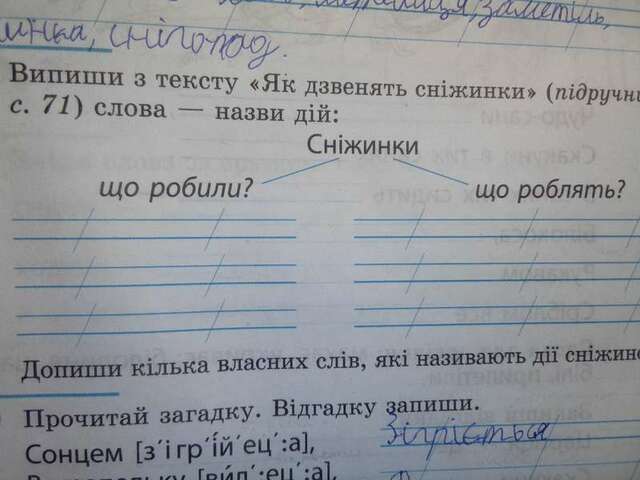 заметіль,
сніговод.
Випиши з тексту «Як дзвенять сніжинки» (підручни
с. 71) слова — назви дій:
Сніжинки
що робили? що роблять?
Допиши кілька власних слів, які називають дії сніжино
Прочитай загадку. Відгадку запиши.
Сонцем [з´ігр´і́й´ец´:а], зігріється
[ви́л´:ец´:а],